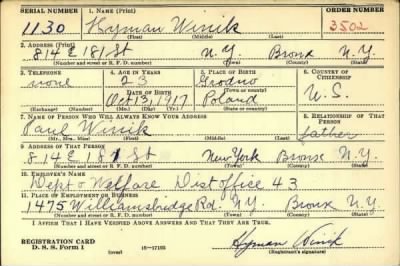 SERIAL NUMBER 1. NAME (Print) ORDER NUMBER
1130 Hyman Winik 3502
(First) (Middle) (Last)
2. ADDRESS (Print)
814 E 181 St N.Y. Bronx N.Y.
(Number and street or R. F. D. number) (Town) (County) (State)
3. TELEPHONE 4. AGE IN YEARS 5. PLACE OF BIRTH 6. COUNTRY OF CITIZENSHIP
none 23 Grodno
DATE OF BIRTH (Town or county)
Oct 13, 1917 Poland U.S.
(Exchange) (Number) (Mo.) (Day) (Yr.) (State or country)
7. NAME OF PERSON WHO WILL ALWAYS KNOW YOUR ADDRESS 8. RELATIONSHIP OF THAT PERSON
Paul Winik father
(Mr., Mrs., Miss) (First) (Middle) (Last)
9. ADDRESS OF THAT PERSON
814 E 181 St New York Bronx N.Y.
(Number and street or R. F. D. number) (Town) (County) (State)
10. EMPLOYER'S NAME
Dept of Welfare Dist office 43
11. PLACE OF EMPLOYMENT OR BUSINESS
1475 Williamsbridge Rd. N.Y. Bronx N.Y.
(Number and street or R. F. D. number) (Town) (County) (State)
I AFFIRM THAT I HAVE VERIFIED ABOVE ANSWERS AND THAT THEY ARE TRUE.
REGISTRATION CARD
D. S. S. Form 1 (over) 16—17105 Hyman Winik
(Registrant's signature)